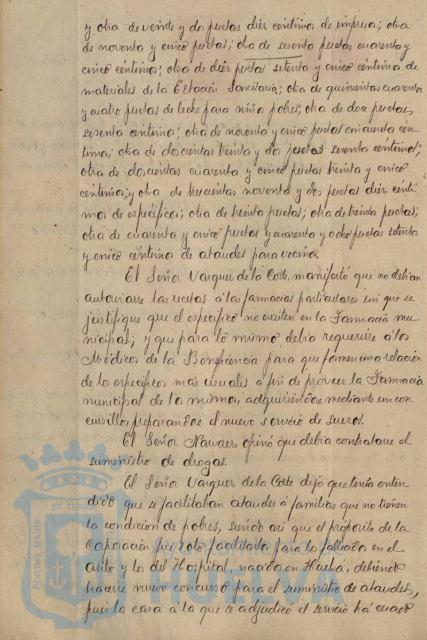 y otra de veinte y dos pesetas diez centimos de impresos; otra
de noventa y cinco pesetas; otra de sesenta pesetas cuarenta y
cinco centimos; otra de diez pesetas setenta y cinco centimos de
materiales de la Estación Sanitaria; otra de quinientas cuarenta
y cuatro pesetas de leche para niños pobres; otra de doce pesetas,
sesenta centimos; otra de noventa y cinco pesetas cincuenta cen-
timos; otra de doscientas treinta y dos pesetas sesenta centimos;
otra de doscientas cuarenta y cinco pesetas treinta y cinco
centimos; y otra de trescientas noventa y dos pesetas diez centi-
mos de especificos; otra de treinta pesetas; otra de treinta pesetas;
otra de cuarenta y cinco pesetas y cuarenta y ocho pesetas setenta
y cinco centimos de ataudes para vecinos.
El Señor Vazquez de la Corte, manifestó que no debian
autorizarse las recetas á las farmacias particulares sin que se
justifique que el especifico no existe en la Farmacia mu-
nicipal; y que para lo mismo debia requerirse á los
Médicos de la Beneficencia para que formen una relación
de los especificos mas usuales á fin de proveer la Farmacia
municipal de los mismos, adquiriendose mediante un con-
cursillo, preparandose el nuevo servicio de sueros.
El Señor Narvaez opinó que debia contratarse el
suministro de drogas.
El Señor Vazquez de la Corte dijo que tenia enten-
dido que se facilitaban ataudes á familias que no tienen
la condición de pobres, siendo asi que el propósito de la
Corporación fué solo facilitarlo para los fallecidos en el
Asilo y los del Hospital, nacidos en Huelva, debiendo
hacerse nuevo concurso para el suministro de ataudes,
pues la casa á la que se adjudicó el servicio há cuatro
PORTUS MARIS
ET TERRAE
HUELVA